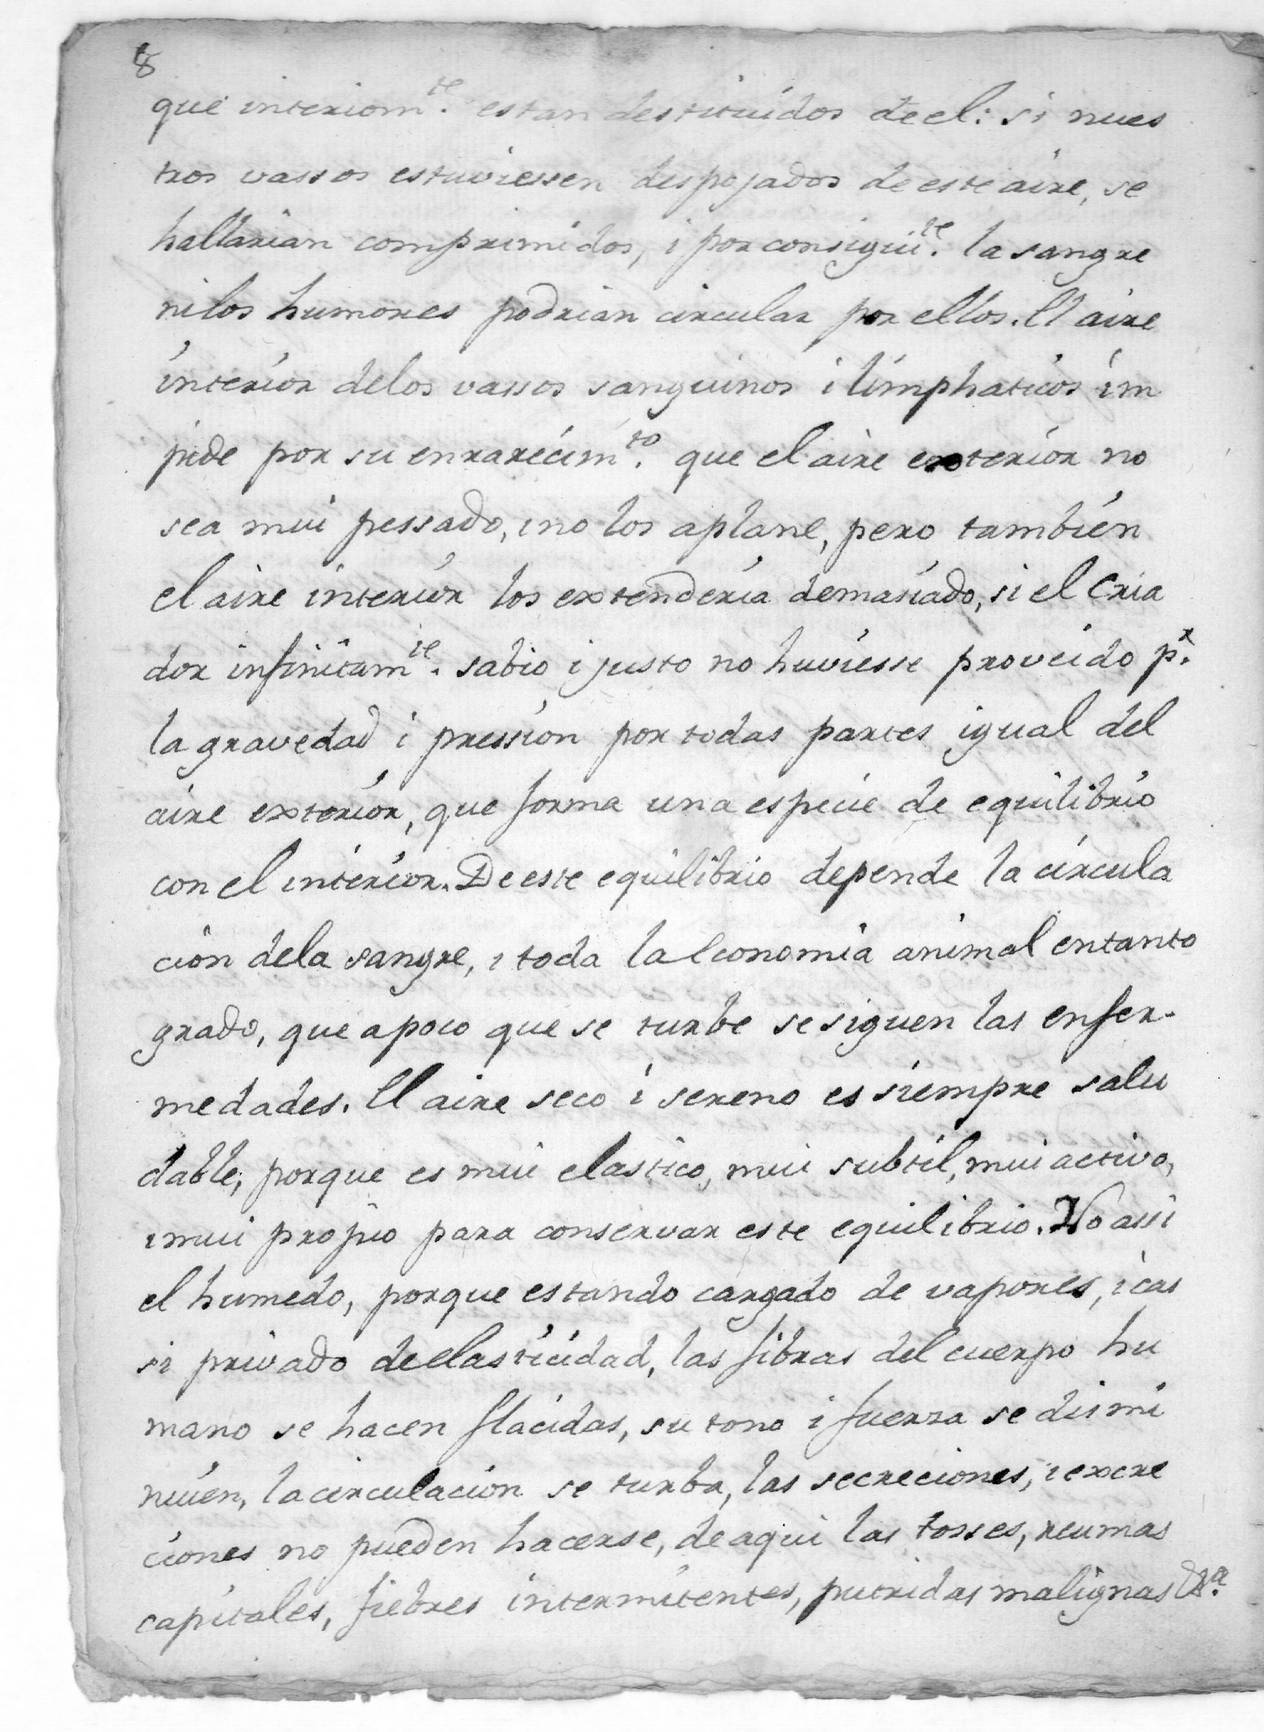 8
que interiorm.te estan destituidos de el: si nues
tros vassos estuviessen despojados de este aire, se
hallarian comprimidos, i por consigui.te la sangre
ni los humores podrian circular por ellos. El aire
interior delos vassos sanguinos i limphaticos im
pide por su enrarecim.to que el aire exterior no
sea mui pessado, i no los aplane, pero también
el aire interior los extendería demasiado, si el Cria
dor infinitam.te sabio i justo no huviesse proveido p.r
la gravedad i pression por todas partes igual del
aire exterior, que forma una especie de equilibrio
con el interior. De este equilibrio depende la circula
ción dela sangre, i toda la Economia animal entanto
grado, que apoco que se turbe se siguen las enfer-
medades. El aire seco i sereno es siempre salu
dable, porque es mui elastico, mui subtil, mui activo,
i mui propio para conservar este equilibrio. No assi
el humedo, porque estando cargado de vapores, i cas
si privado de elasticidad, las fibras del cuerpo hu
mano se hacen flacidas, su tono i fuerza se dismi
nuien, la circulación se turba, las secreciones, i excre
ciones no pueden hacerse, de aqui las tosses, reumas
capitales, fiebres intermitentes, putridas malignas &.a